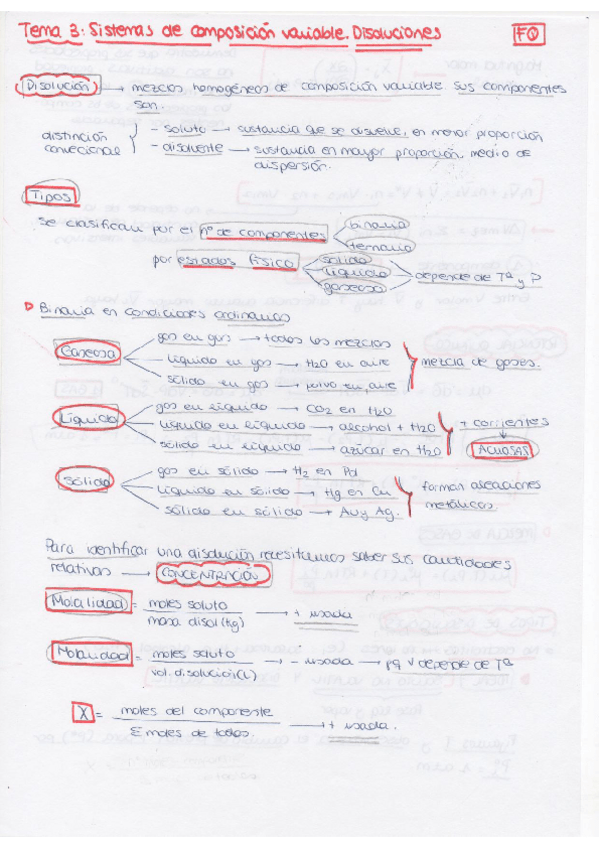 Tema 3: Sistemas de composición variable. Disoluciones FQ
Disolución → mezclas homogéneas de composición variable sus componentes
son.
distinción
convecional
- soluto → sustancia que se disuelve, en menor proporción
- disolvente → sustancia en mayor proporción, medio de
dispersión.
Tipos
se clasifican por el nº de componentes binaria
ternaria
por estados físico sólido
líquido
gaseosa
depende de Tª y P
Binaria en condiciones ordinarias
Gaseosa
gas en gas → todas las mezclas
líquido en gas → H2O en aire
sólido en gas → polvo en aire
mezcla de gases.
Líquida
gas en líquido → CO2 en H2O
líquido en líquido → alcohol + H2O
sólido en líquido → azúcar en H2O
+ corrientes
ACUOSAS
Sólida
gas en sólido → H2 en Pd
líquido en sólido → Hg en Cu
sólido en sólido → Au y Ag.
forman aleaciones
metálicas.
Para identificar una disolución necesitamos saber sus cantidades
relativas → CONCENTRACIÓN
Molalidad = moles soluto / masa disol (kg) → + usada
Molaridad = moles soluto / vol. disolución (L) → - usada → pq V depende de Tª
X = moles del componente / Σ moles de todos → + usada.